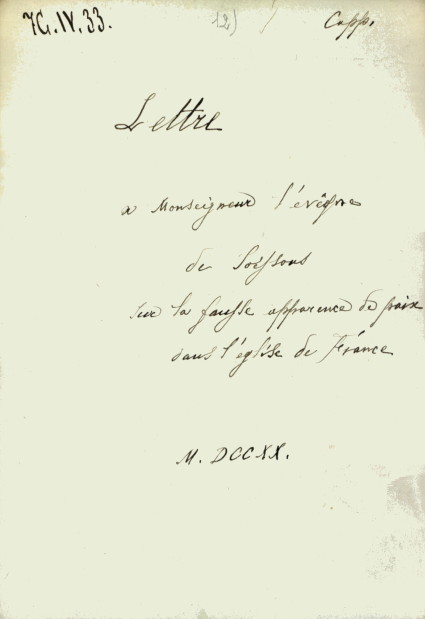 7G.IV.33. (2) Capp.
Lettre
a Monseigneur l'évêque
de Soissons
sur la fausse apparence de paix
dans l'église de France
M. DCCXX.